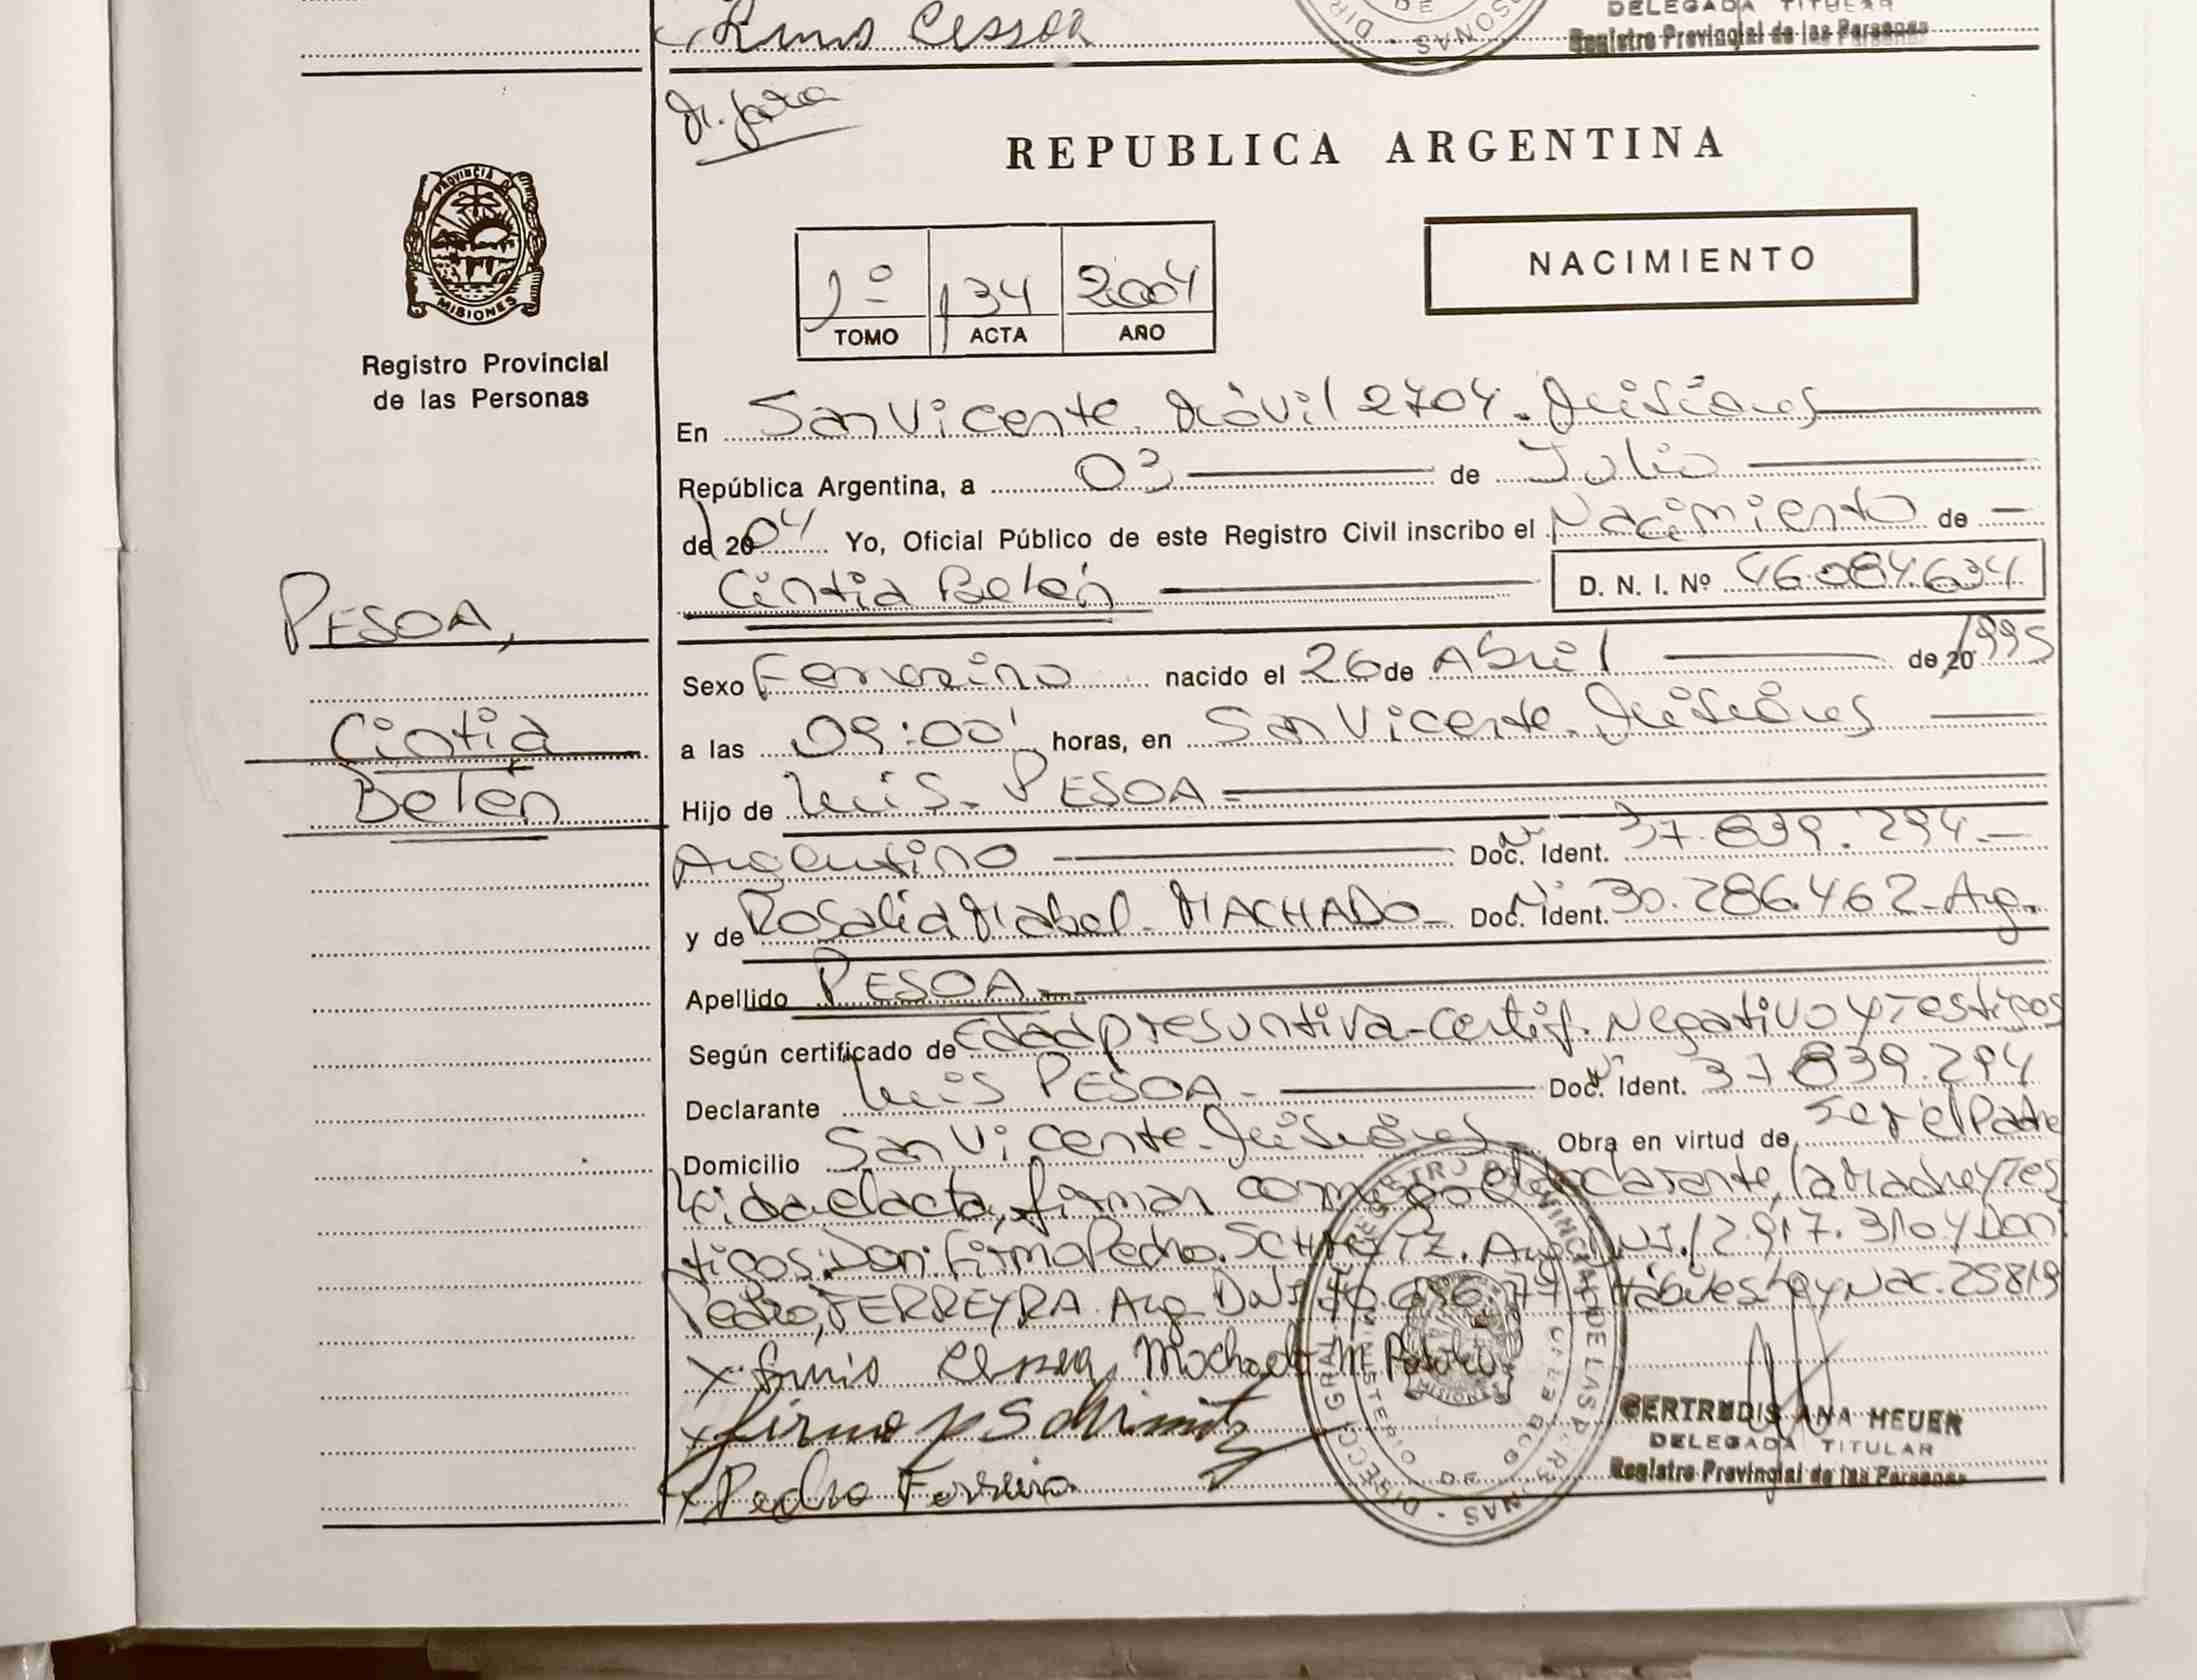 DELEGADA TITULAR
Registro Provincial de las Personas
REPUBLICA ARGENTINA
PROVINCIA DE
MISIONES
Registro Provincial
de las Personas
1º 134 2004
TOMO ACTA AÑO
NACIMIENTO
En San Vicente. Móvil 2704. Misiones
República Argentina, a 03 de Julio
de 2004 Yo, Oficial Público de este Registro Civil inscribo el Nacimiento de
Cintia Belén D. N. I. Nº 46.084.634
PESOA,
Cintia
Belén
Sexo Femenino nacido el 26 de Abril de 20 1995
a las 09:00' horas, en San Vicente. Misiones
Hijo de Luis. PESOA
Argentino Doc. Ident. 37.839.294
y de Rosalia Mabel. MACHADO Doc. Ident. 30.286.462 Arg.
Apellido PESOA
Según certificado de Edad presuntiva-Certif. Negativo y Testigos
Declarante Luis PESOA Doc. Ident. 37.839.294
Domicilio San Vicente. Misiones Obra en virtud de ser el Padre
Leida el acta, firman conmigo el declarante, la Madre y Tes
tigos: Don: Firmo Pedro. Arg. 12.917.310 y Don
Pedro, FERREYRA. Arg. DNI Nac. 25819
Firmo P Schimitz
Pedro Ferreira
GERTRUDIS ANA HEUER
DELEGADA TITULAR
Registro Provincial de las Personas